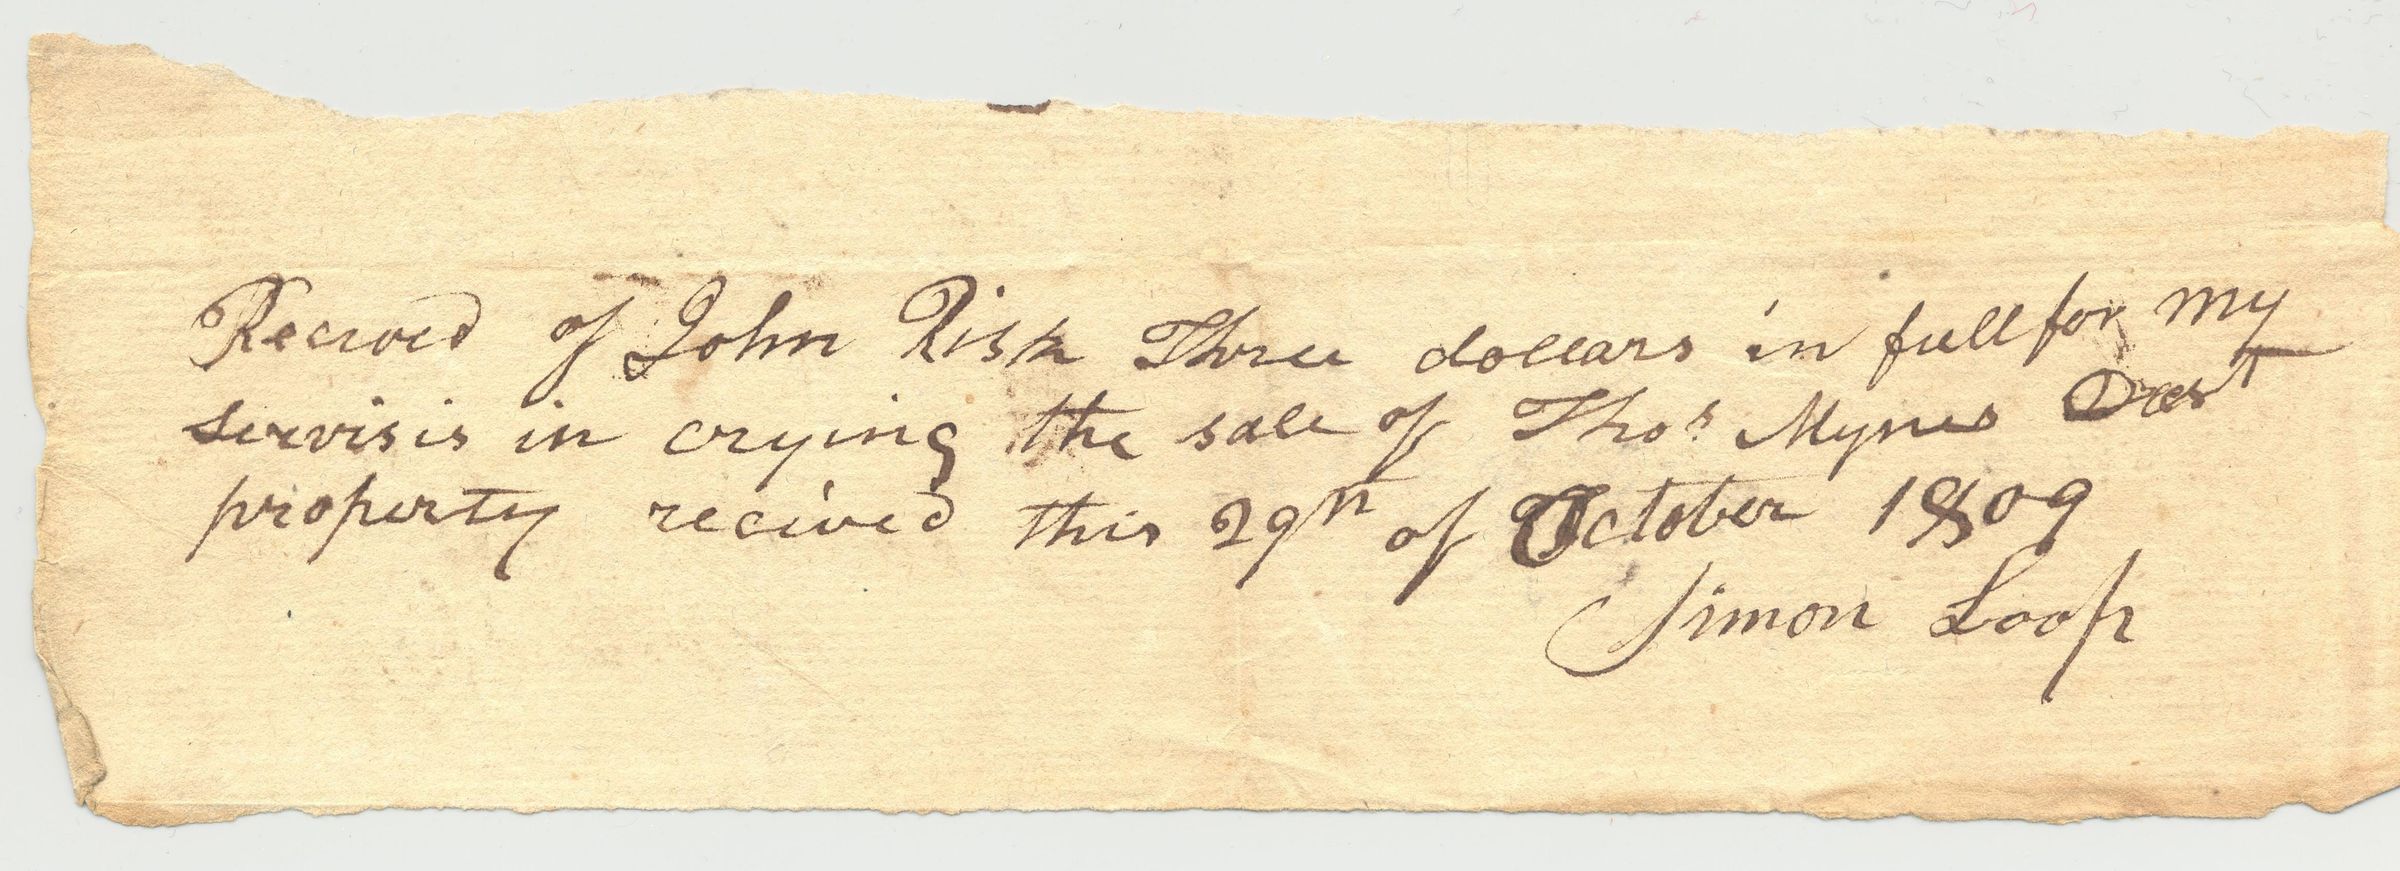 Recived of John Risk Three dollars in full for my
servisis in crying the sale of Thos Mynes Dest
property recived this 29th of October 1809
Simon Loop